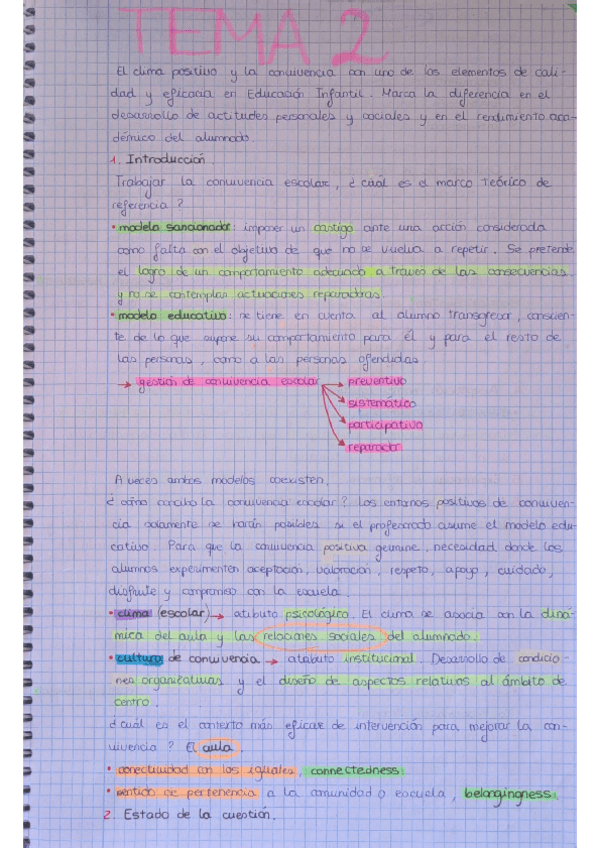 TEMA 2
El clima positivo y la convivencia son uno de los elementos de cali-
dad y eficacia en Educación Infantil. Marca la diferencia en el
desarrollo de actitudes personales y sociales y en el rendimiento aca-
démico del alumnado.
1. Introducción.
Trabajar la convivencia escolar, ¿cuál es el marco teórico de
referencia?
• modelo sancionador: imponer un castigo ante una acción considerada
como falta con el objetivo de que no se vuelva a repetir. Se pretende
el logro de un comportamiento adecuado a través de las consecuencias
y no se contemplan actuaciones reparadoras.
• modelo educativo: se tiene en cuenta al alumno transgresor, conscien-
te de lo que supone su comportamiento para él y para el resto de
las personas, como a las personas ofendidas
→ gestión de convivencia escolar → preventivo
sistemático
participativo
reparador
A veces ambos modelos coexisten.
¿cómo concibo la convivencia escolar? Los entornos positivos de conviven-
cia solamente se harán posibles si el profesorado asume el modelo edu-
cativo. Para que la convivencia positiva germine, necesidad donde los
alumnos experimenten aceptación, valoración, respeto, apoyo, cuidado,
disfrute y compromiso con la escuela.
• clima (escolar) → atibuto psicológico. El clima se asocia con la diná-
mica del aula y las relaciones sociales del alumnado.
• cultura de convivencia → atabuto institucional. Desarrollo de condicio-
nes organizativas y el diseño de aspectos relativos al ámbito de
centro.
¿cuál es el contexto más eficaz de intervención para mejorar la con-
vivencia? El aula.
• conectividad con los iguales, connectedness.
• sentido de pertenencia a la comunidad o escuela, belongingness.
2. Estado de la cuestión.